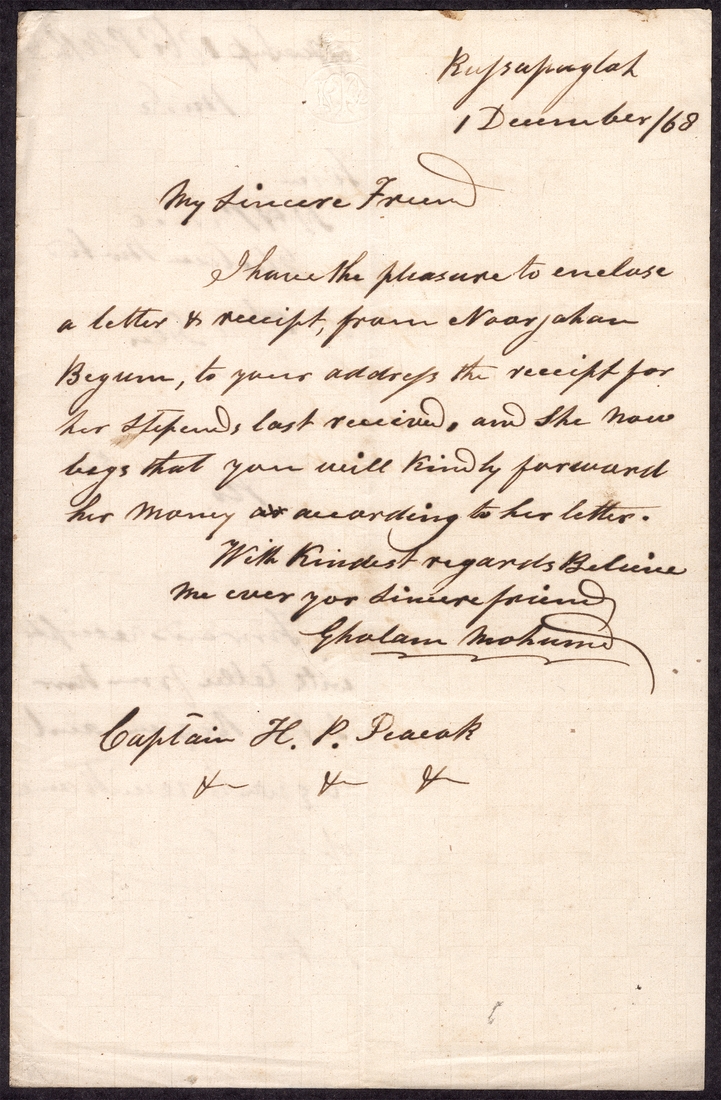 Russapuglah
1 December/68
My Sincere Friend
I have the pleasure to enclose
a letter & receipt, from Noorjahan
Begum, to your address the receipt for
her Stipends last received, and She now
begs that you will Kindly forward
her Money according to her letter.
With Kindest regards Believe
Me ever yor Sincere friend
Gholam Mohumd
Captain H. P. Peacok
& & &